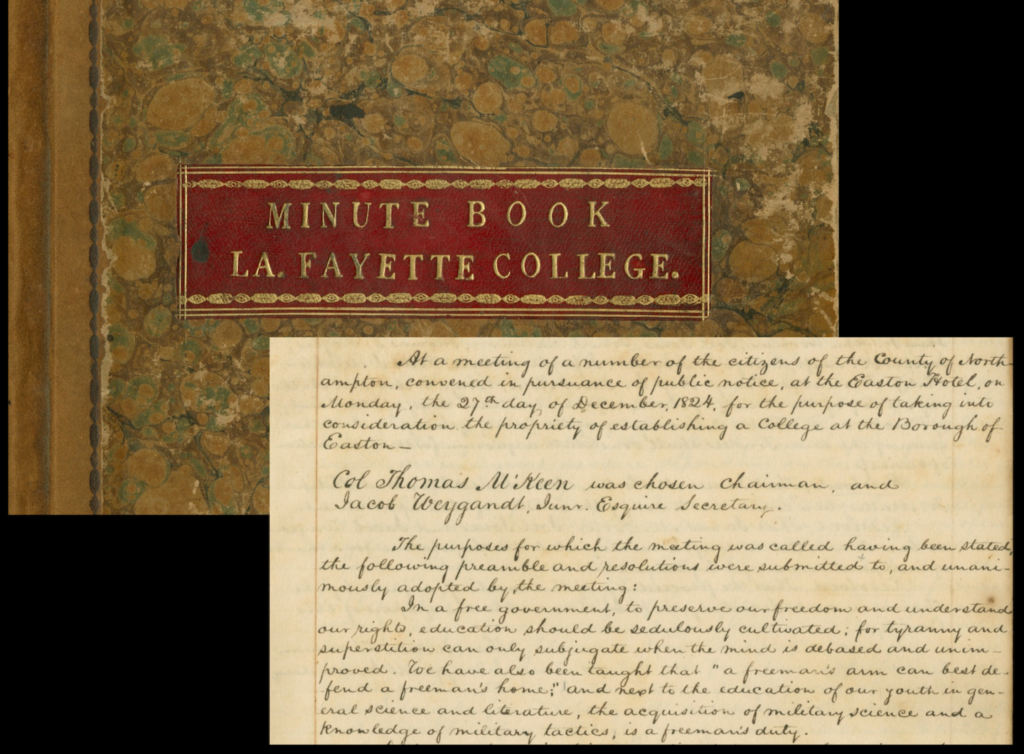 MINUTE BOOK
LA. FAYETTE COLLEGE.
At a meeting of a number of the citizens of the County of North-
ampton, convened in pursuance of public notice, at the Easton Hotel, on
Monday, the 27th day of December, 1824, for the purpose of taking into
consideration the propriety of establishing a College at the Borough of
Easton—
Col Thomas M'Keen was chosen Chairman, and
Jacob Weygandt, Junr. Esquire Secretary.
The purposes for which the meeting was called having been stated,
the following preamble and resolutions were submitted to, and unani-
mously adopted by the meeting:
In a free government, to preserve our freedom and understand
our rights, education should be sedulously cultivated; for tyranny and
superstition can only subjugate when the mind is debased and unim-
proved. We have also been taught that "a freeman's arm can best de-
fend a freeman's home;" and next to the education of our youth in gen-
eral science and literature, the acquisition of military science and a
knowledge of military tactics, is a freeman's duty.